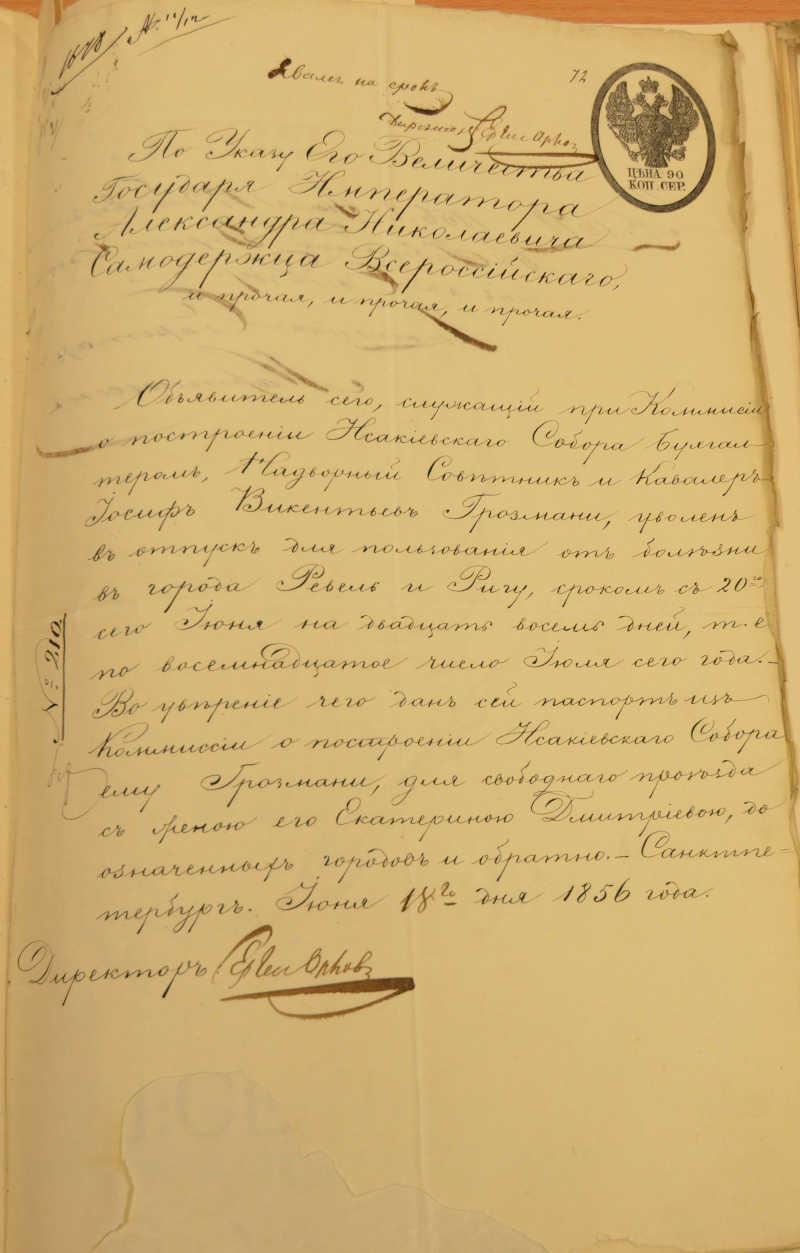 № 11/12
72
на срокъ
ЦѢНА 90
КОП. СЕР.
По Указу Его Величества
Государя Императора
Александра Николаевича
Самодержца Всероссійскаго,
и прочая, и прочая, и прочая.
Объявитель сего, служащій при Коммисіи
о построеніи Исакіевскаго Собора Бухгал-
теромъ, Надворный Совѣтникъ и Кавалеръ
Іосифъ Викентьевъ Грозмани, уволенъ
въ отпускъ для пользованія отъ болѣзни
въ города Ревель и Ригу, срокомъ съ 20го
сего Іюня на двадцать восемь дней, т. е.
по восемнадцатое число Іюля сего года. –
Во увѣреніе чего данъ сей паспортъ изъ
Коммиссіи о построеніи Исакіевскаго Собора
ему Грозмани, для свободнаго проѣзда
съ женою его Екатериною Дмитріевою, до
означенныхъ городовъ и обратно. – Санктпе-
тербургъ. Іюня 18го дня 1856 года.
№ 210
Директоръ